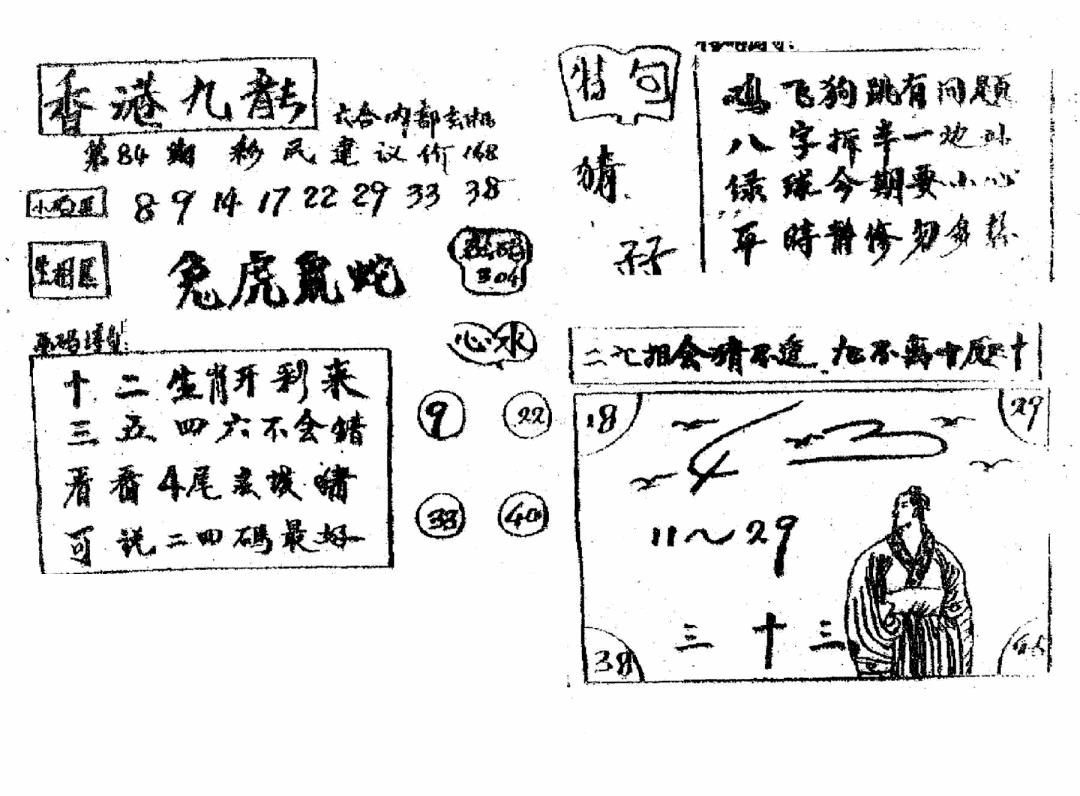 香港九龍
六合内部玄机
第84期 彩民建议价168
小码区 8 9 14 17 22 29 33 38
生相區
兔虎鼠蛇
304
心水
十二生肖开彩来
三五四六不会錯
看看4尾玄机猜
可説二四碼最好
9 22
33 40
特句
猜
鸡飞狗跳有问题
八字拆半一边
绿球今期要小心
平時静修勿多
二七相会猜不透 九不离十
18
29
11～29
三十三
38